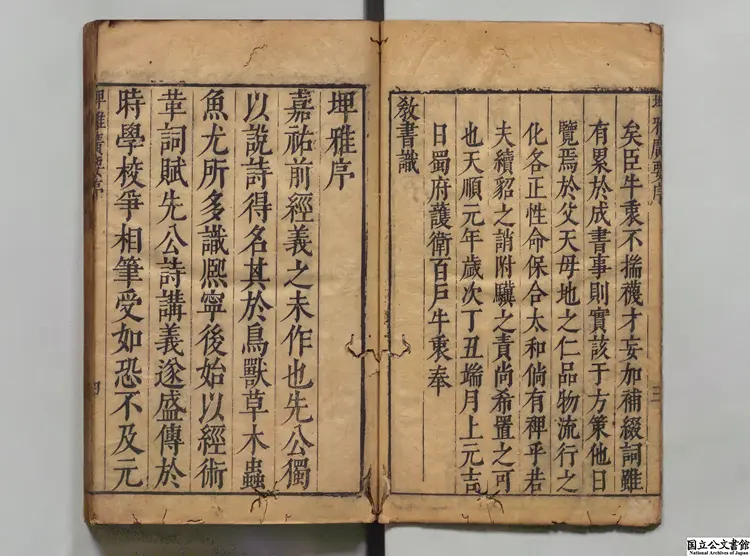 埤雅廣要序
三
矣臣牛衷不揣襪才妄加補綴詞雖
有累於成書事則實該于方策他日
覽焉於父天母地之仁品物流行之
化各正性命保合太和倘有裨乎若
夫續貂之誚附驥之責尚希置之可
也天順元年歲次丁丑端月上元吉
日蜀府護衛百戶牛衷奉
敎書識
埤雅序
嘉祐前經義之未作也先公獨
以說詩得名其於鳥獸草木蟲
魚尤所多識熈寧後始以經術
革詞賦先公詩講義遂盛傳於
時學校爭相筆受如恐不及元
埤雅廣要序
四
国立公文書館
National Archives of Japan